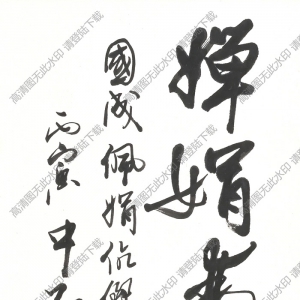 婵娟
國成佩娟伉儷
丙寅中
高清图无此水印 请登陆下载